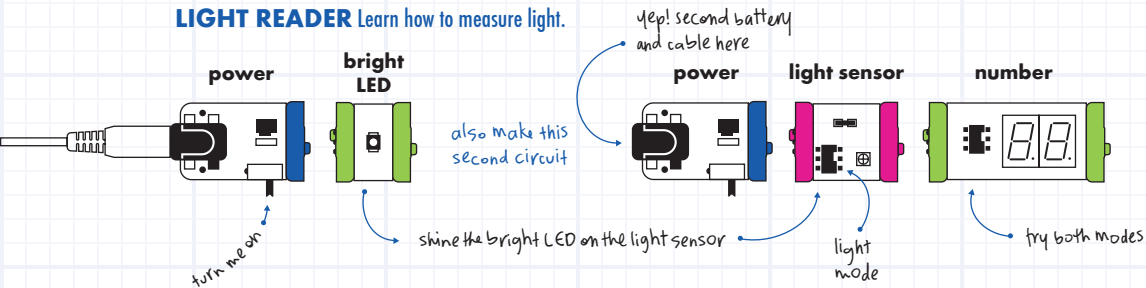 LIGHT READER Learn how to measure light.
yep! second battery
and cable here
power
bright
LED
power
light sensor
number
also make this
second circuit
8.8.
turn me on
shine the bright LED on the light sensor
light
mode
try both modes